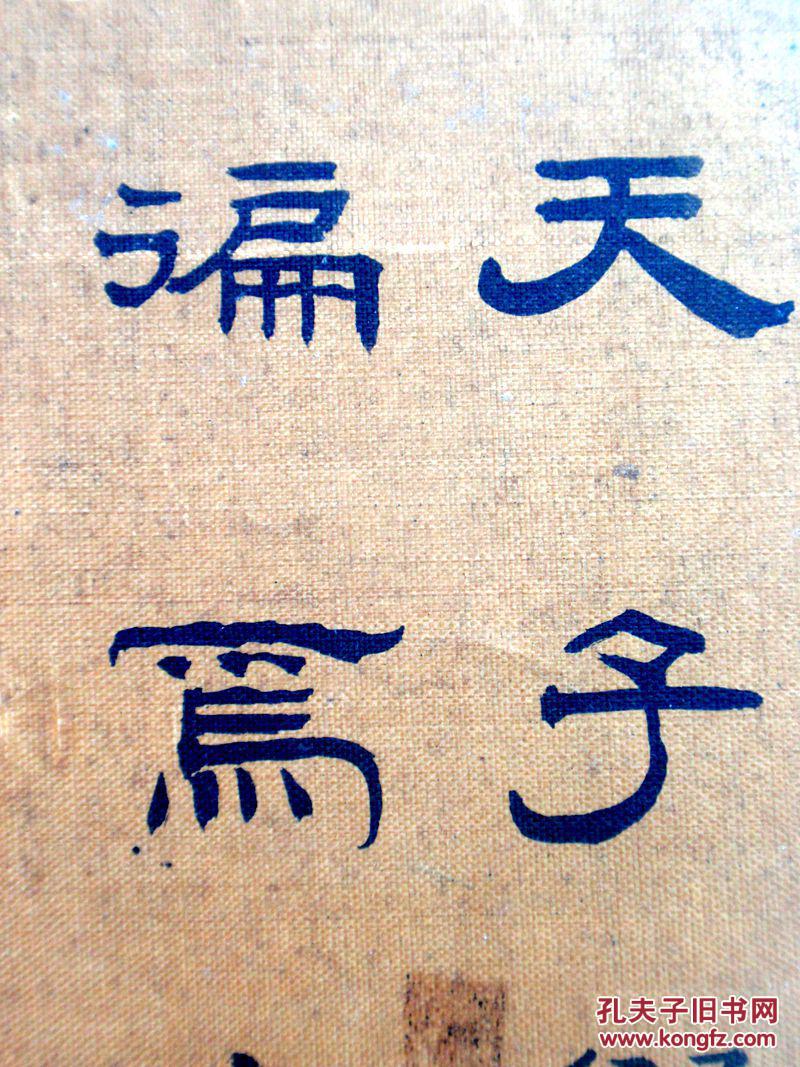 天子
徧寫
孔夫子旧书网
www.kongfz.com